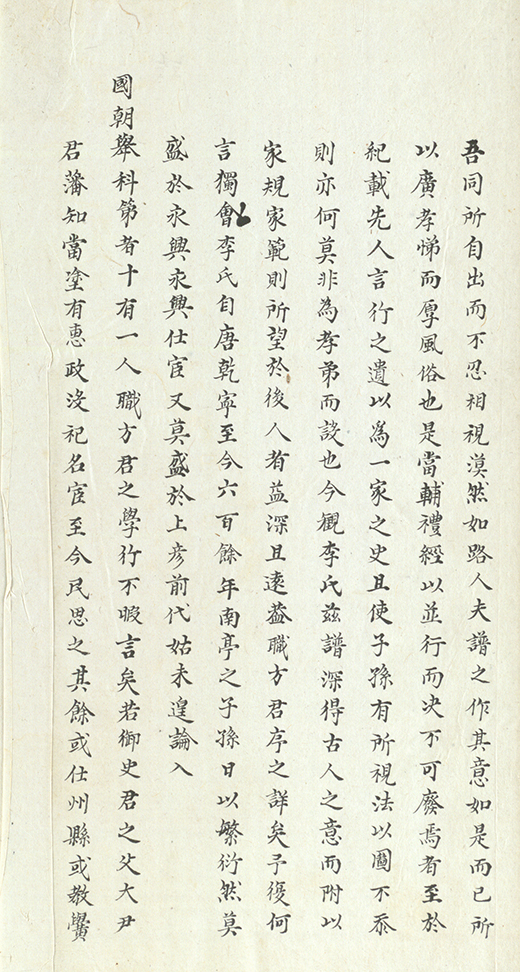 吾同所自出而不忍相視漠然如路人夫譜之作其意如是而已所
以廣孝悌而厚風俗也是當輔禮經以並行而决不可廢焉者至於
紀載先人言行之遺以為一家之史且使子孫有所視法以圖不忝
則亦何莫非為孝弟而設也今觀李氏兹譜深得古人之意而附以
家規家範則所望於後人者益深且遠葢職方君序之詳矣予復何
言獨會李氏自唐乾寧至今六百餘年南亭之子孫日以繁衍然莫
盛於永興永興仕宦又莫盛於上彦前代姑未遑論入
國朝舉科第者十有一人職方君之學行不暇言矣若御史君之父大尹
君藩知當塗有惠政沒祀名宦至今民思之其餘或仕州縣或教黌